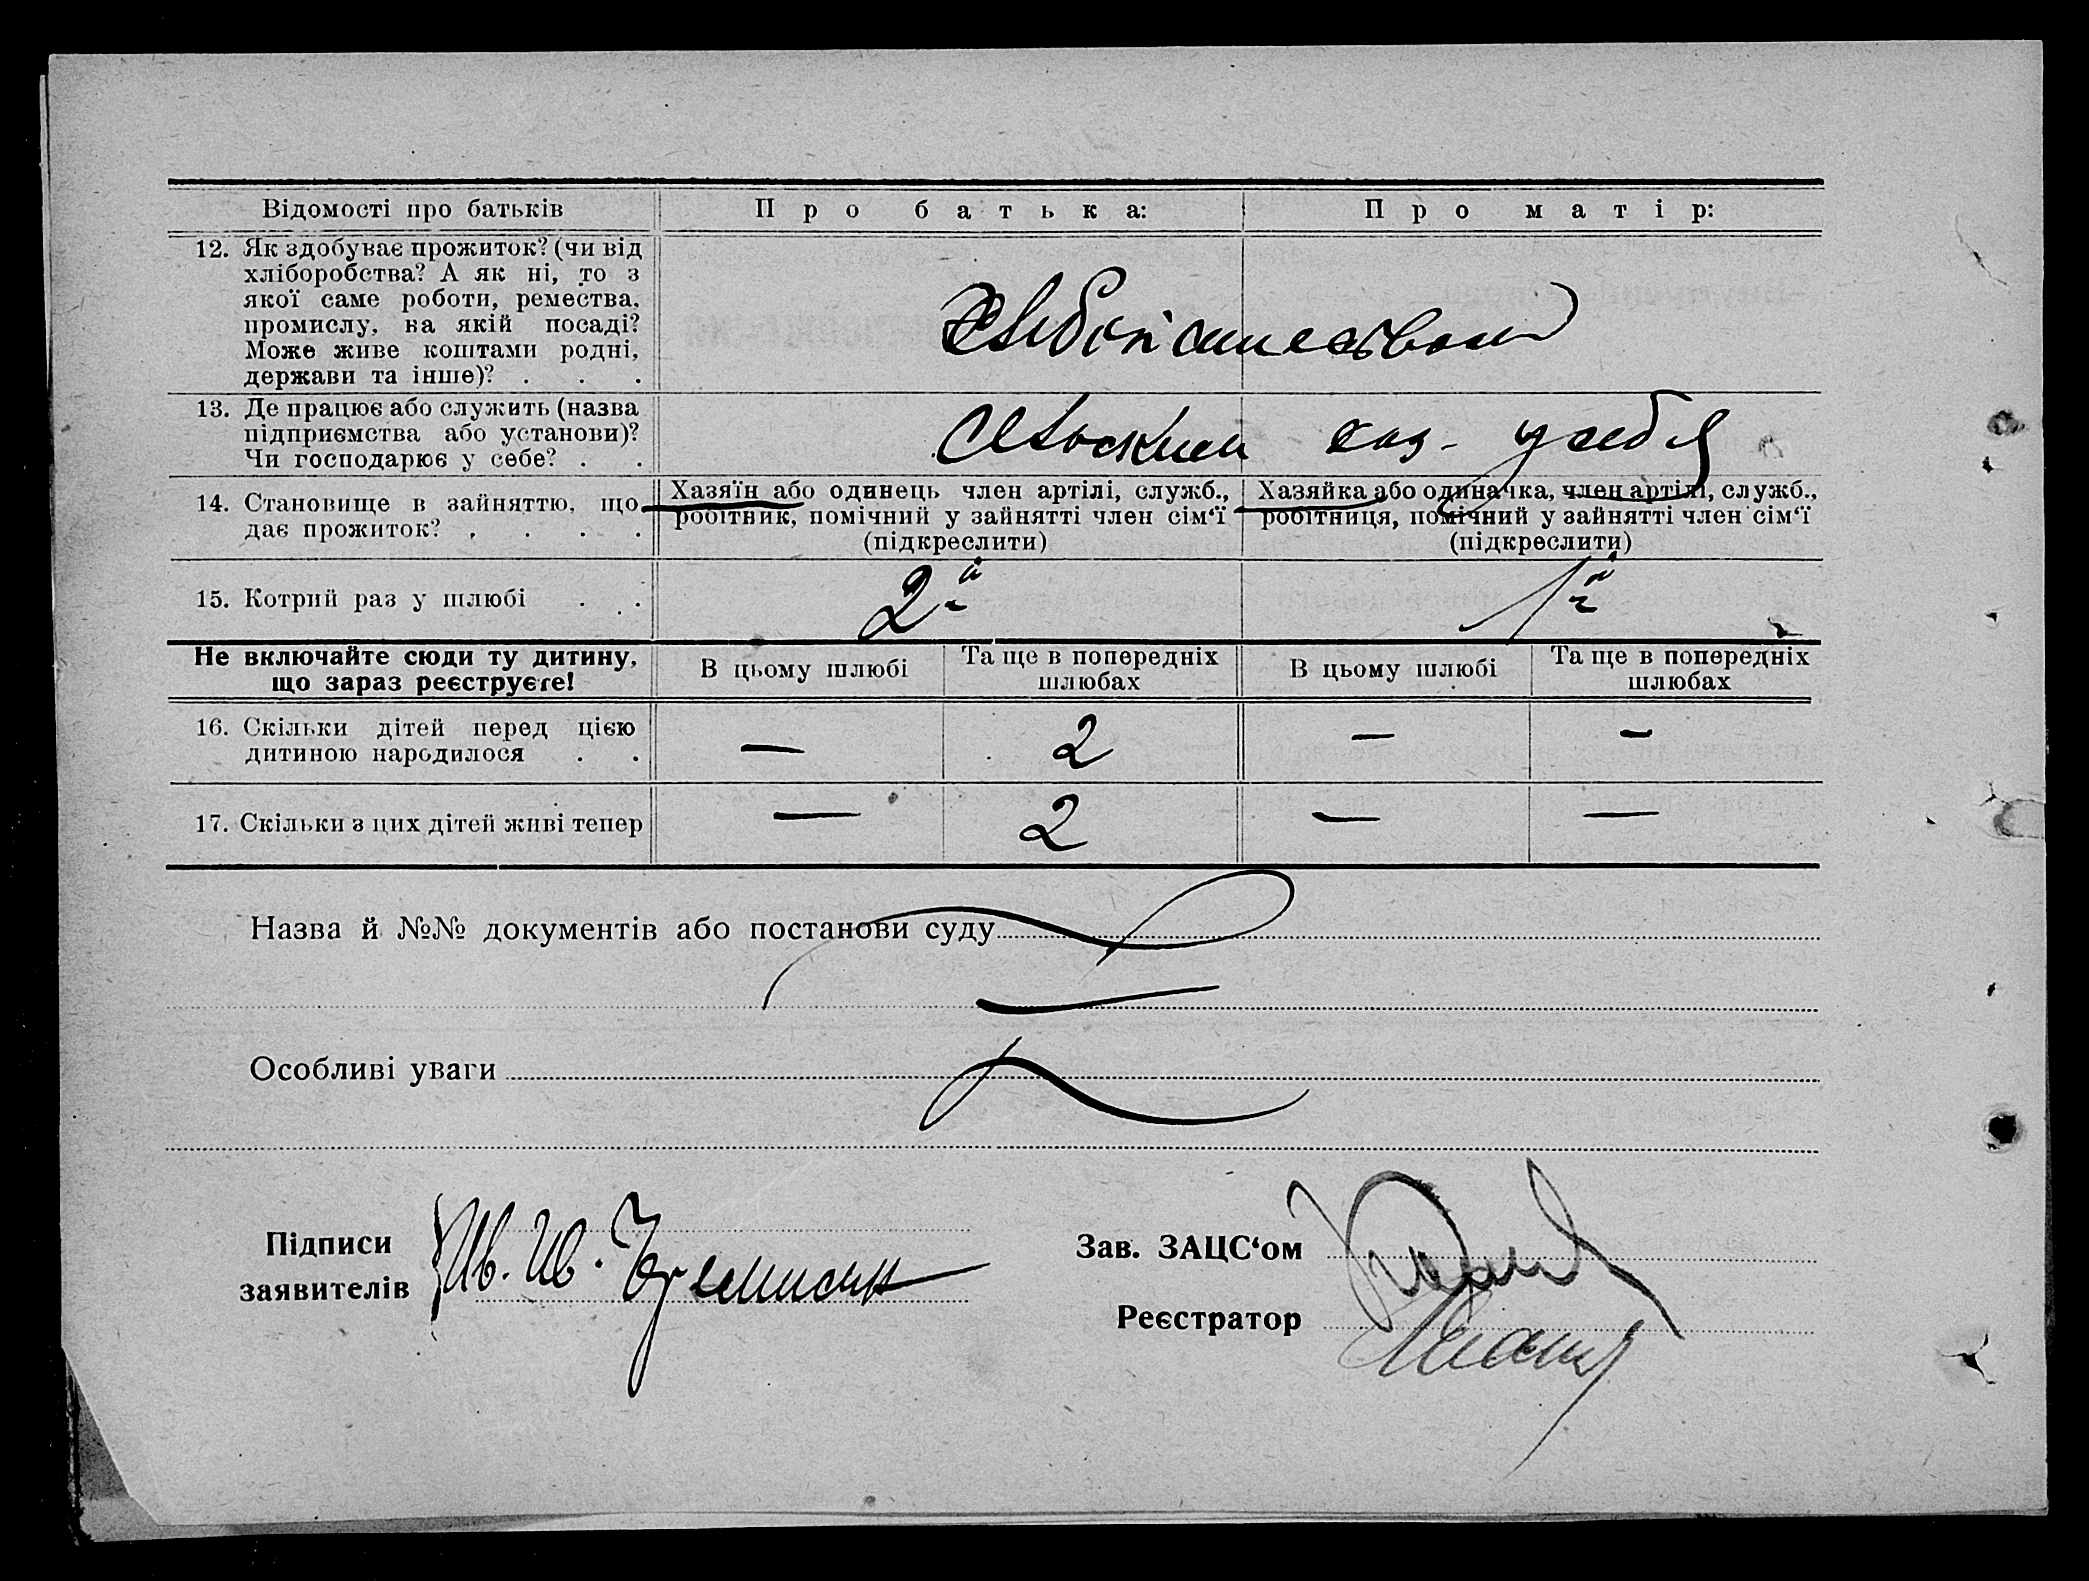 Відомості про батьків
Про батька:
Про матір:
12. Як здобуває прожиток? (чи від
хліборобства? А як ні, то з
якої саме роботи, ремества,
промислу, на якій посаді?
Може живе коштами родні,
держави та інше)? . . .
13. Де працює або служить (назва
підприємства або установи)?
Чи господарює у себе? . .
14. Становище в зайняттю, що
дає прожиток? . . . .
Хазяїн або одинець член артілі, служб.,
робітник, помічний у зайнятті член сім‘ї
(підкреслити)
Хазяйка або одиначка, член артілі, служб.,
робітниця, помічний у зайнятті член сім‘ї
(підкреслити)
15. Котрий раз у шлюбі . .
2й
1й
Не включайте сюди ту дитину,
що зараз реєструєте!
В цьому шлюбі
Та ще в попередніх
шлюбах
В цьому шлюбі
Та ще в попередніх
шлюбах
16. Скільки дітей перед цією
дитиною народилося . .
— 2 — —
17. Скільки з цих дітей живі тепер
— 2 — —
Назва й №№ документів або постанови суду
Особливі уваги
Підписи
заявителів
Ив. Ив.
Зав. ЗАЦС‘ом
Реєстратор